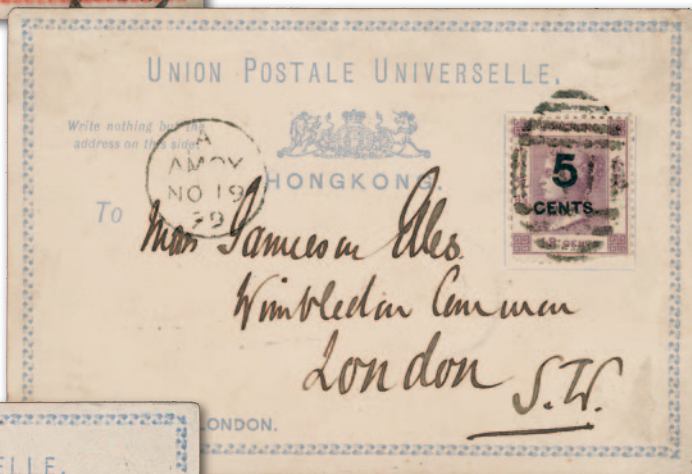 UNION POSTALE UNIVERSELLE.
Write nothing but the
address on this side.
A
AMOY
NO 19
79
HONGKONG.
5
CENTS.
To
Wimbledon Common
London
S.W.
LONDON.
ELLE.